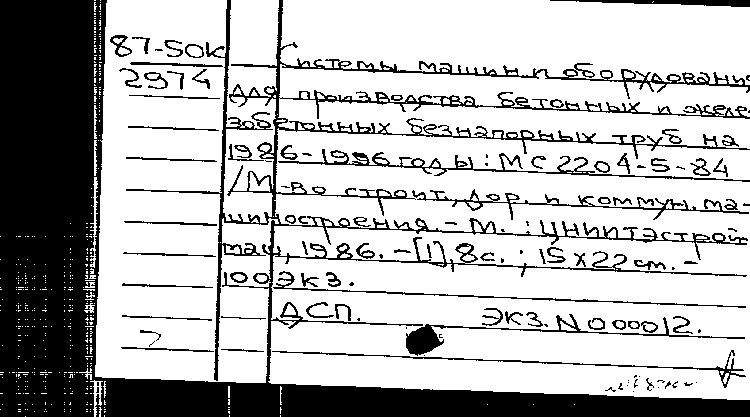 87-50к
2974
Системы машин и оборудования
для производства бетонных и желе-
зобетонных безнапорных труб на
1986-1996 годы: МС 2204-5-84
/М-во строит., дор. и коммун. ма-
шиностроения. - М. : ЦНИИТЭстрой-
маш, 1986. - [1], 8с. ; 15x22 см. -
100 экз.
ДСП. экз. N 000012.